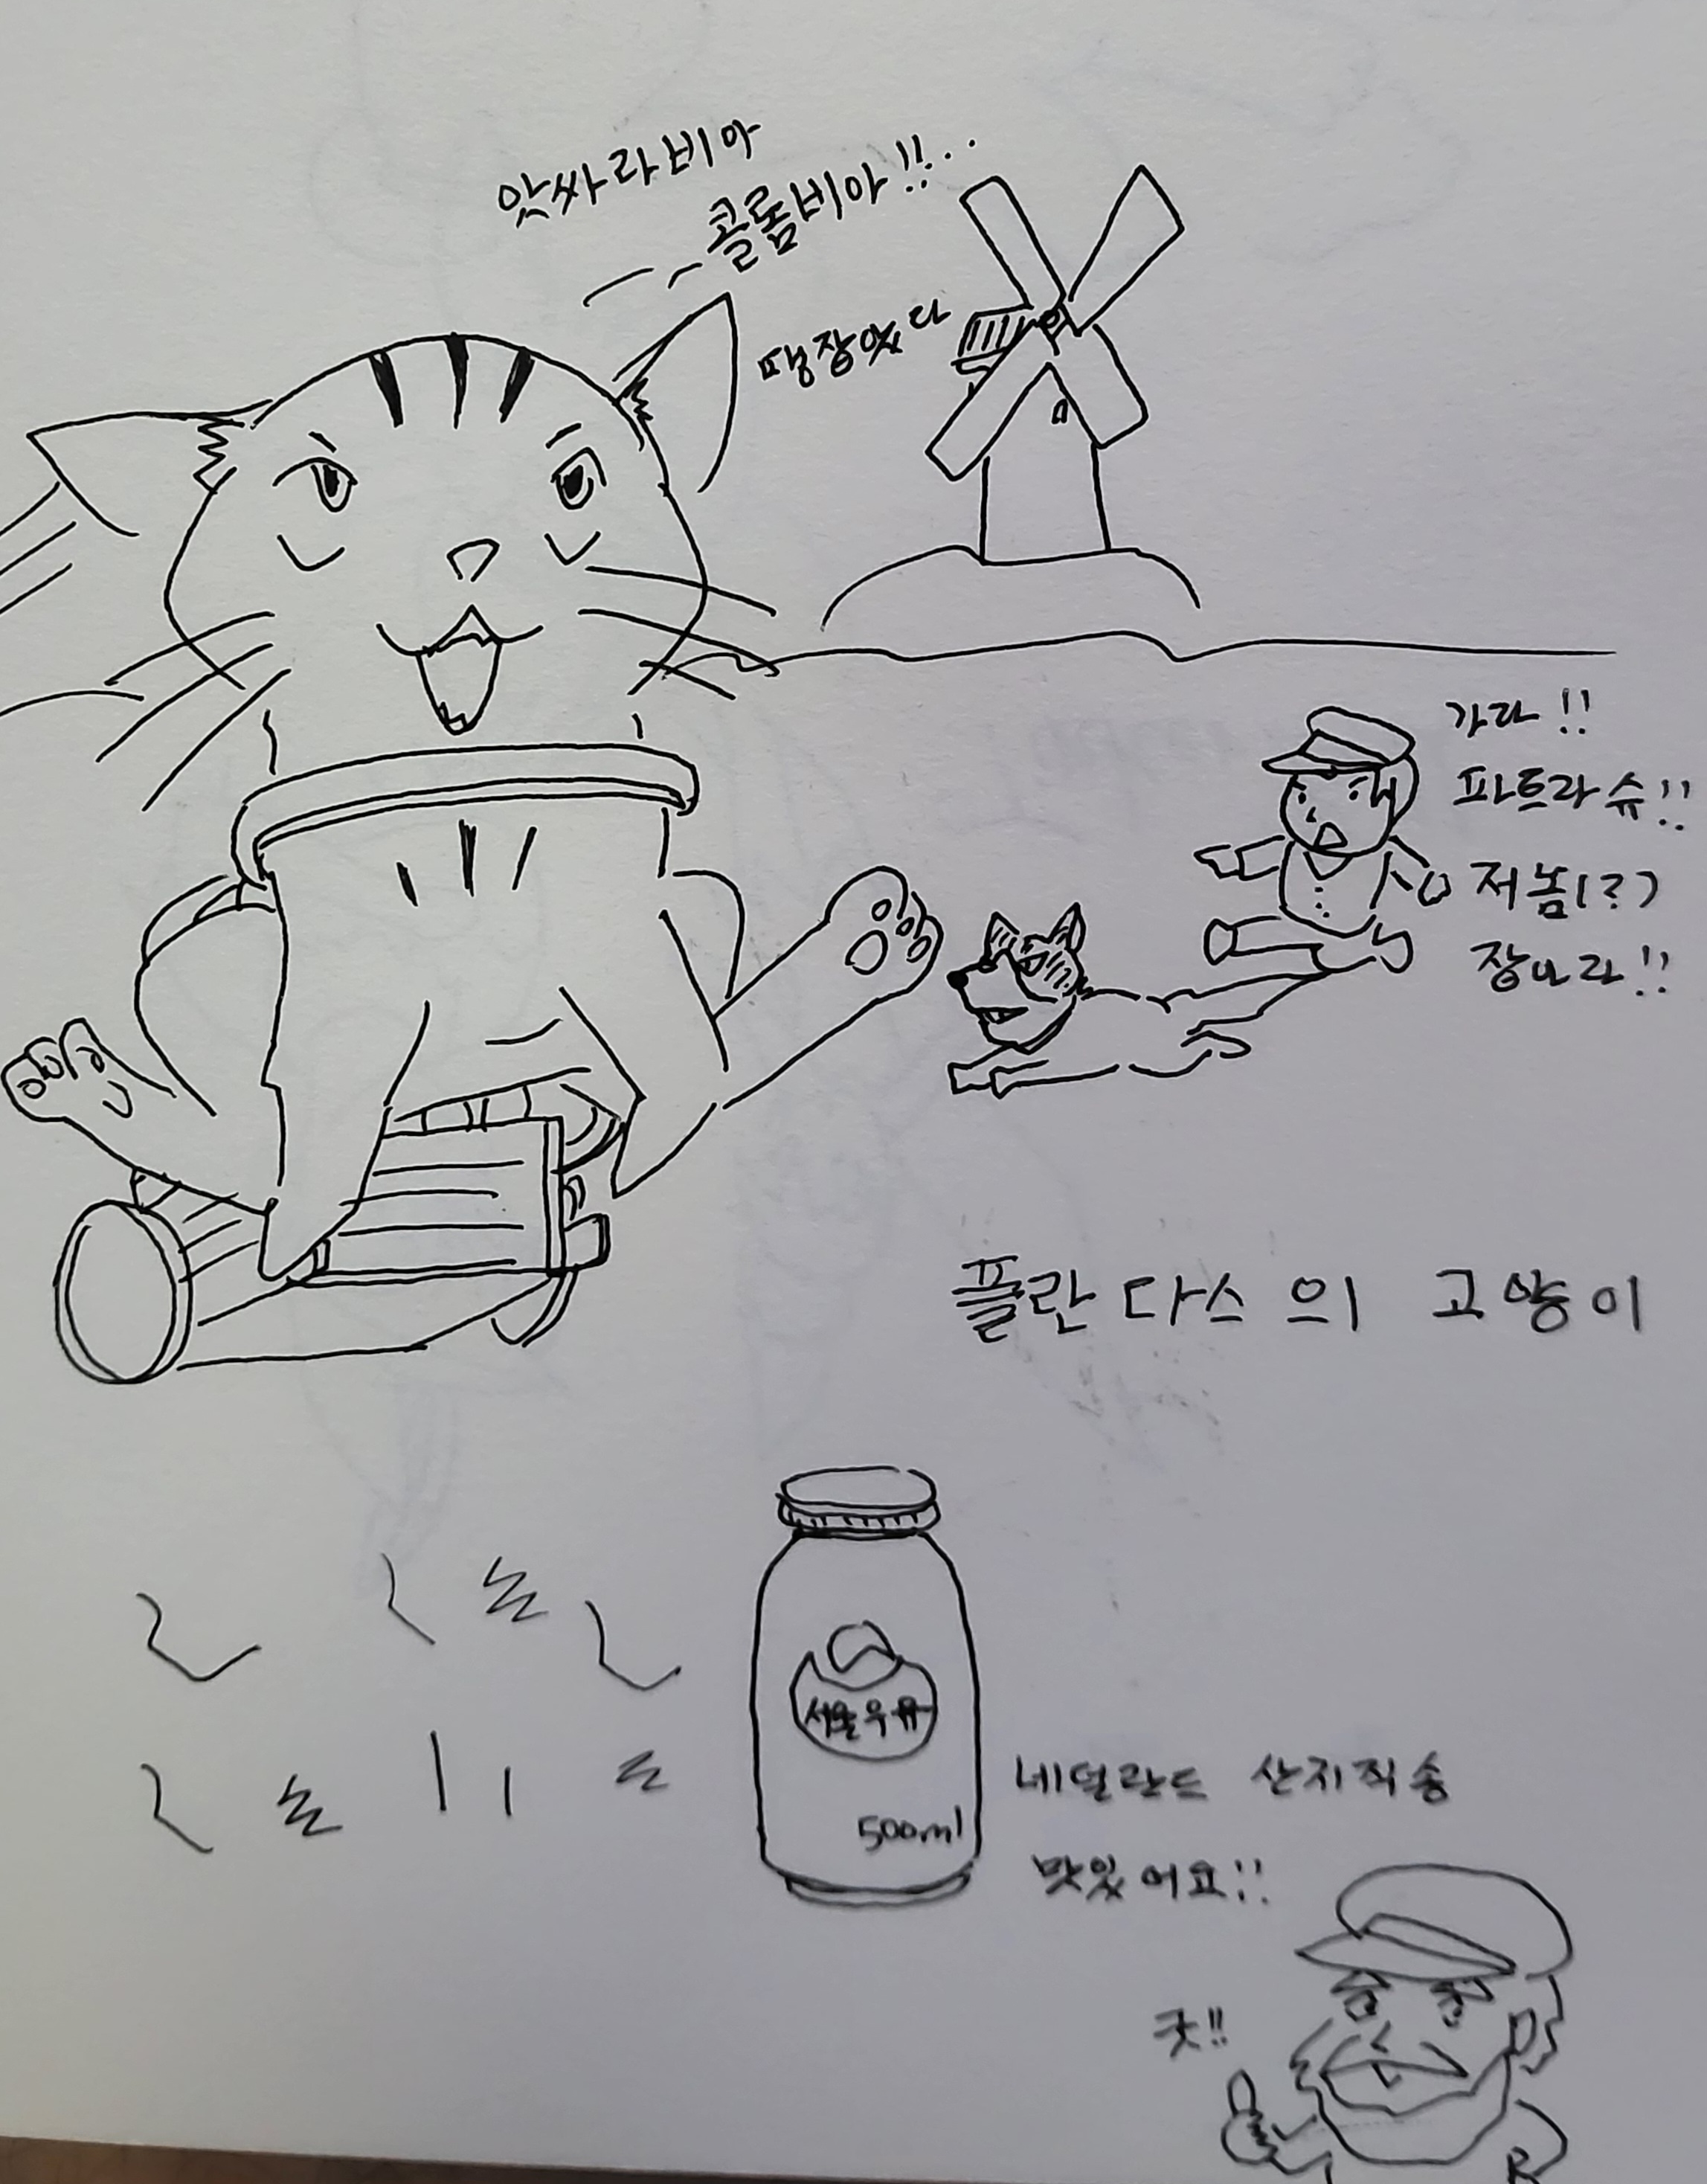 앗싸라비아
콜롬비아!!..
땡잡았다
가라!!
파트라슈!!
저놈(?)
잡아라!!
플란다스의 고양이
서울우유
500ml
네덜란드 산지직송
맛있어요!!
굿!!